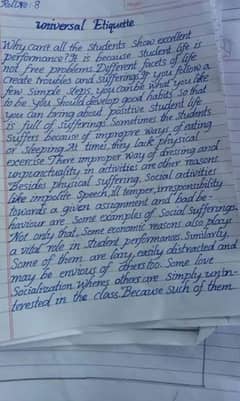 Roll No: 8
Universal Etiquette
Why can't all the students show excellent
performance? It is because student life is
not free problems. Different facets of life
create troubles and sufferings. If you follow a
few simple steps, you can be what you like
to be. You should develop good habits so that
you can bring about positive student life
is full of sufferings. Sometimes the students
suffers because of improper ways of eating
or sleeping. At times, they lack physical
exercise. There improper way of dressing and
unpunctuality in activities are other reasons.
Besides physical suffering, Social activities
like impolite speech, ill temper, irresponsibility
towards a given assignment and bad be-
haviour are some examples of Social Sufferings.
Not only that, Some economic reasons also plays
a vital role in student performances. Similarly,
Some of them are lazy, easily distracted and
may be envious of others too. Some love
Socialization. Wheres others are simply unin-
terested in the class. Because such of them